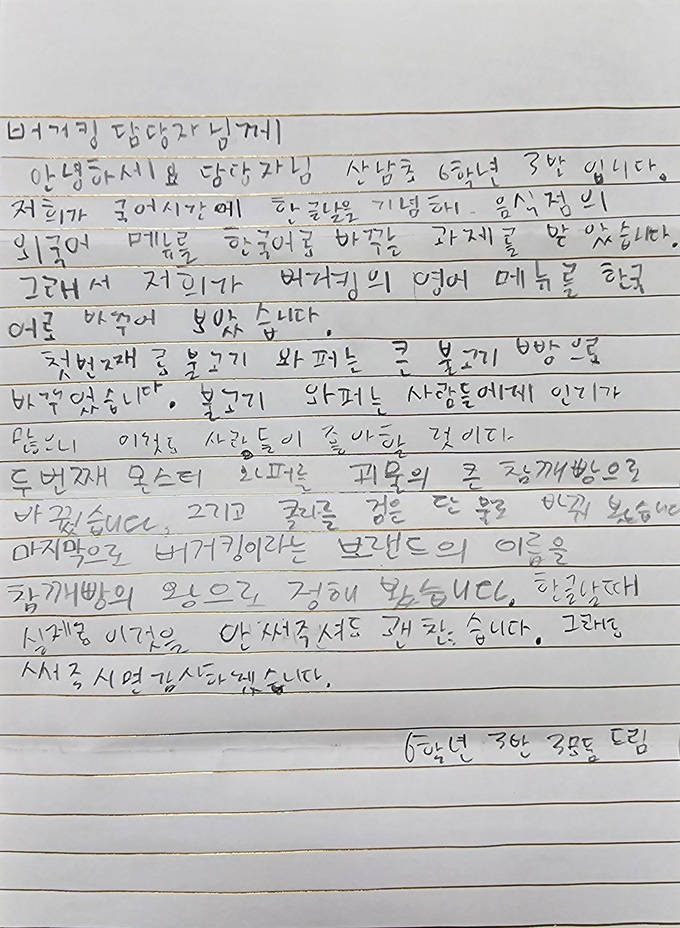 버거킹 담당자님께
안녕하세요 담당자님 산남초 6학년 3반 입니다.
저희가 국어시간에 한글날을 기념해 음식점의
외국어 메뉴를 한국어로 바꾸는 과제를 맡았습니다.
그래서 저희가 버거킹의 영어 메뉴를 한국
어로 바꾸어 보았습니다.
첫번째로 불고기 와퍼는 큰 불고기 빵으로
바꾸었습니다. 불고기 와퍼는 사람들에게 인기가
많으니 이것도 사람들이 좋아할 것이다
두번째 몬스터 와퍼를 괴물의 큰 참깨빵으로
바꿨습니다. 그리고 콜라를 검은 단 물로 바꿔 봤습니다
마지막으로 버거킹이라는 브랜드의 이름을
참깨빵의 왕으로 정해 봤습니다. 한글날때
실제로 이것을 안 써주셔도 괜찮습니다. 그래도
써주시면 감사하겠습니다.
6학년 3반 3모둠 드림